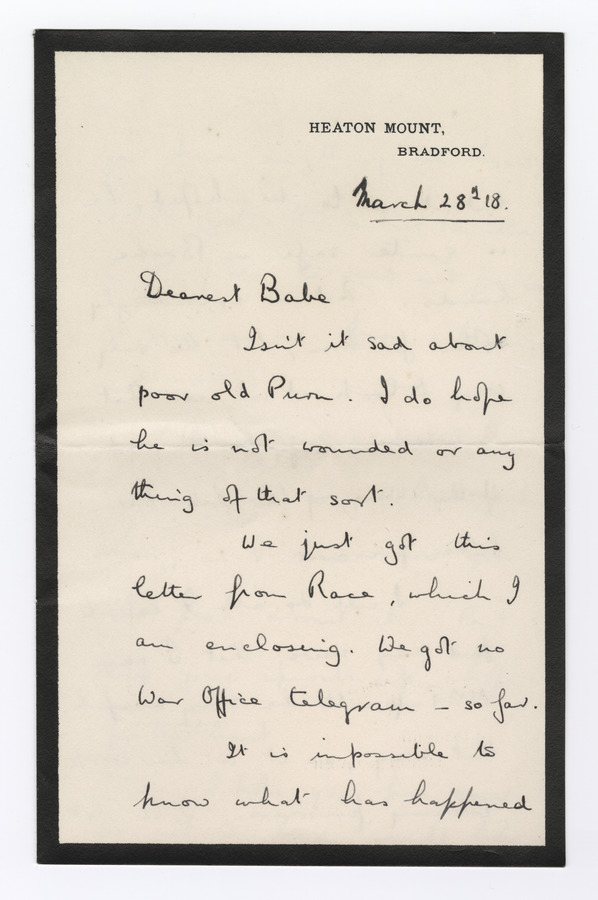 HEATON MOUNT,
BRADFORD.
March 28th 18.
Dearest Babe
Isn't it sad about
poor old Purn. I do hope
he is not wounded or any
thing of that sort.
We just got this
letter from Race, which I
am enclosing. We got no
War Office telegram – so far.
It is impossible to
know what has happened